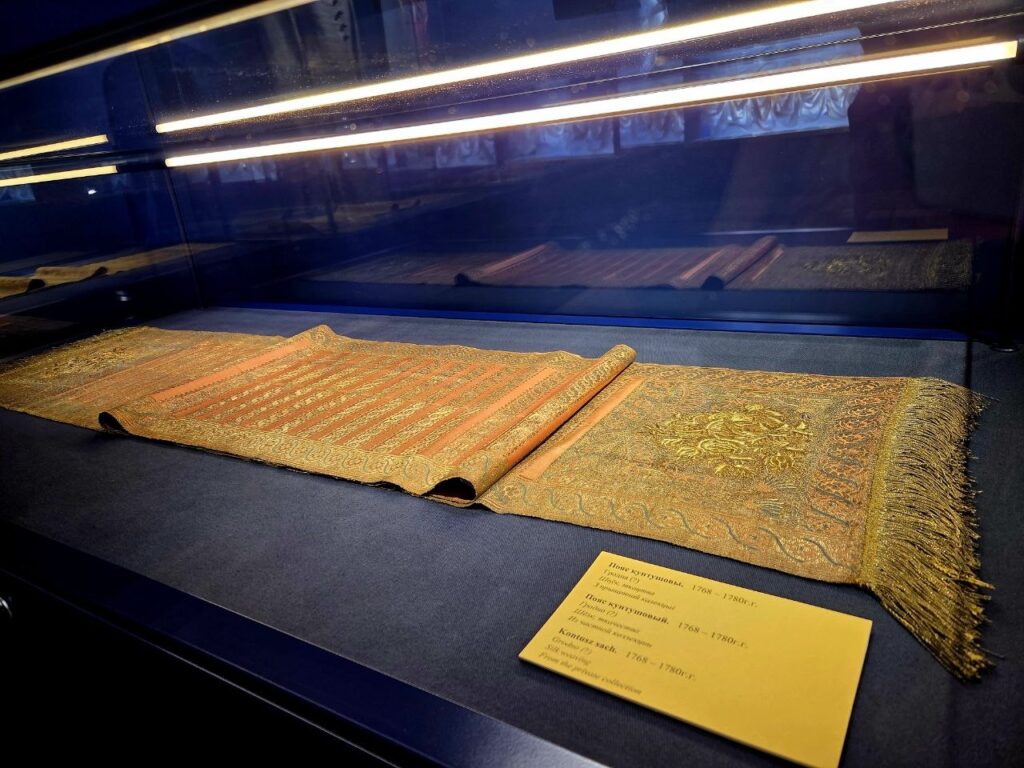 Пояс кунтушовы. 1768 – 1780г.г.
Гродна (?)
Шоўк, ткацтва
З прыватнай калекцыі
Пояс кунтушовый. 1768 – 1780г.г.
Гродно (?)
Шёлк, ткачество
Из частной коллекции
Kontusz sach. 1768 – 1780г.г.
Grodno (?)
Silk weaving
From the private collection